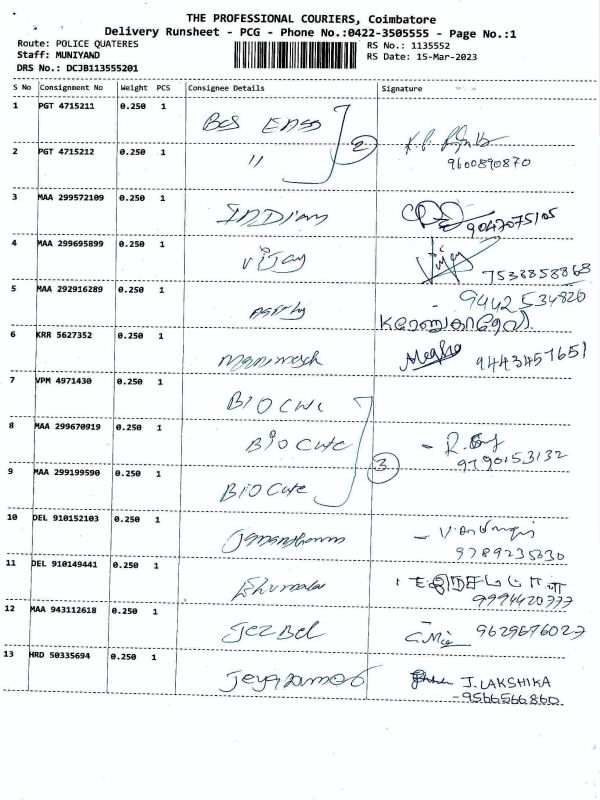 THE PROFESSIONAL COURIERS, Coimbatore
Delivery Runsheet - PCG - Phone No.:0422-3505555 - Page No.:1
Route: POLICE QUATERES
RS No.: 1135552
Staff: MUNIYAND
RS Date: 15-Mar-2023
DRS No.: DCJB113555201
S No Consignment No Weight PCS Consignee Details Signature
1 PGT 4715211 0.250 1
2
2 PGT 4715212 0.250 1 "
9600890870
3 MAA 299572109 0.250 1 INDIAN
9047075105
4 MAA 299695899 0.250 1 Vijay Vijay
7538858868
5 MAA 292916289 0.250 1
9442534826
6 KRR 5627352 0.250 1 Megha 9443457651
7 VPM 4971430 0.250 1 BIO CWC
8 MAA 299670919 0.250 1 BIO CWC
3 9790153132
9 MAA 299199590 0.250 1 BIO CWC
10 DEL 910152103 0.250 1
9789235230
11 DEL 910149441 0.250 1
9994420777
12 MAA 943112618 0.250 1 9629676027
13 HRD 50335694 0.250 1 J. LAKSHIKA
- 9566566860